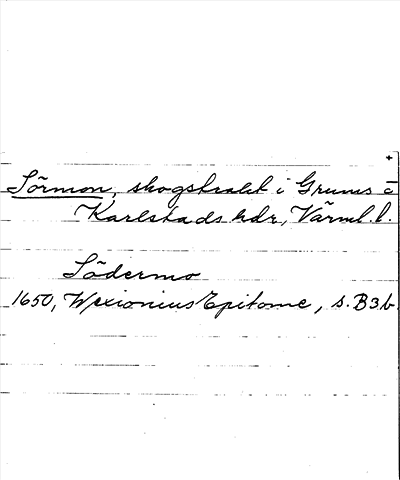 +
Sörmon, skogstrakt i Grums o
Karlstads hdr, Värml. l.
Södermo
1650, Wexionius Epitome, s. B3b.